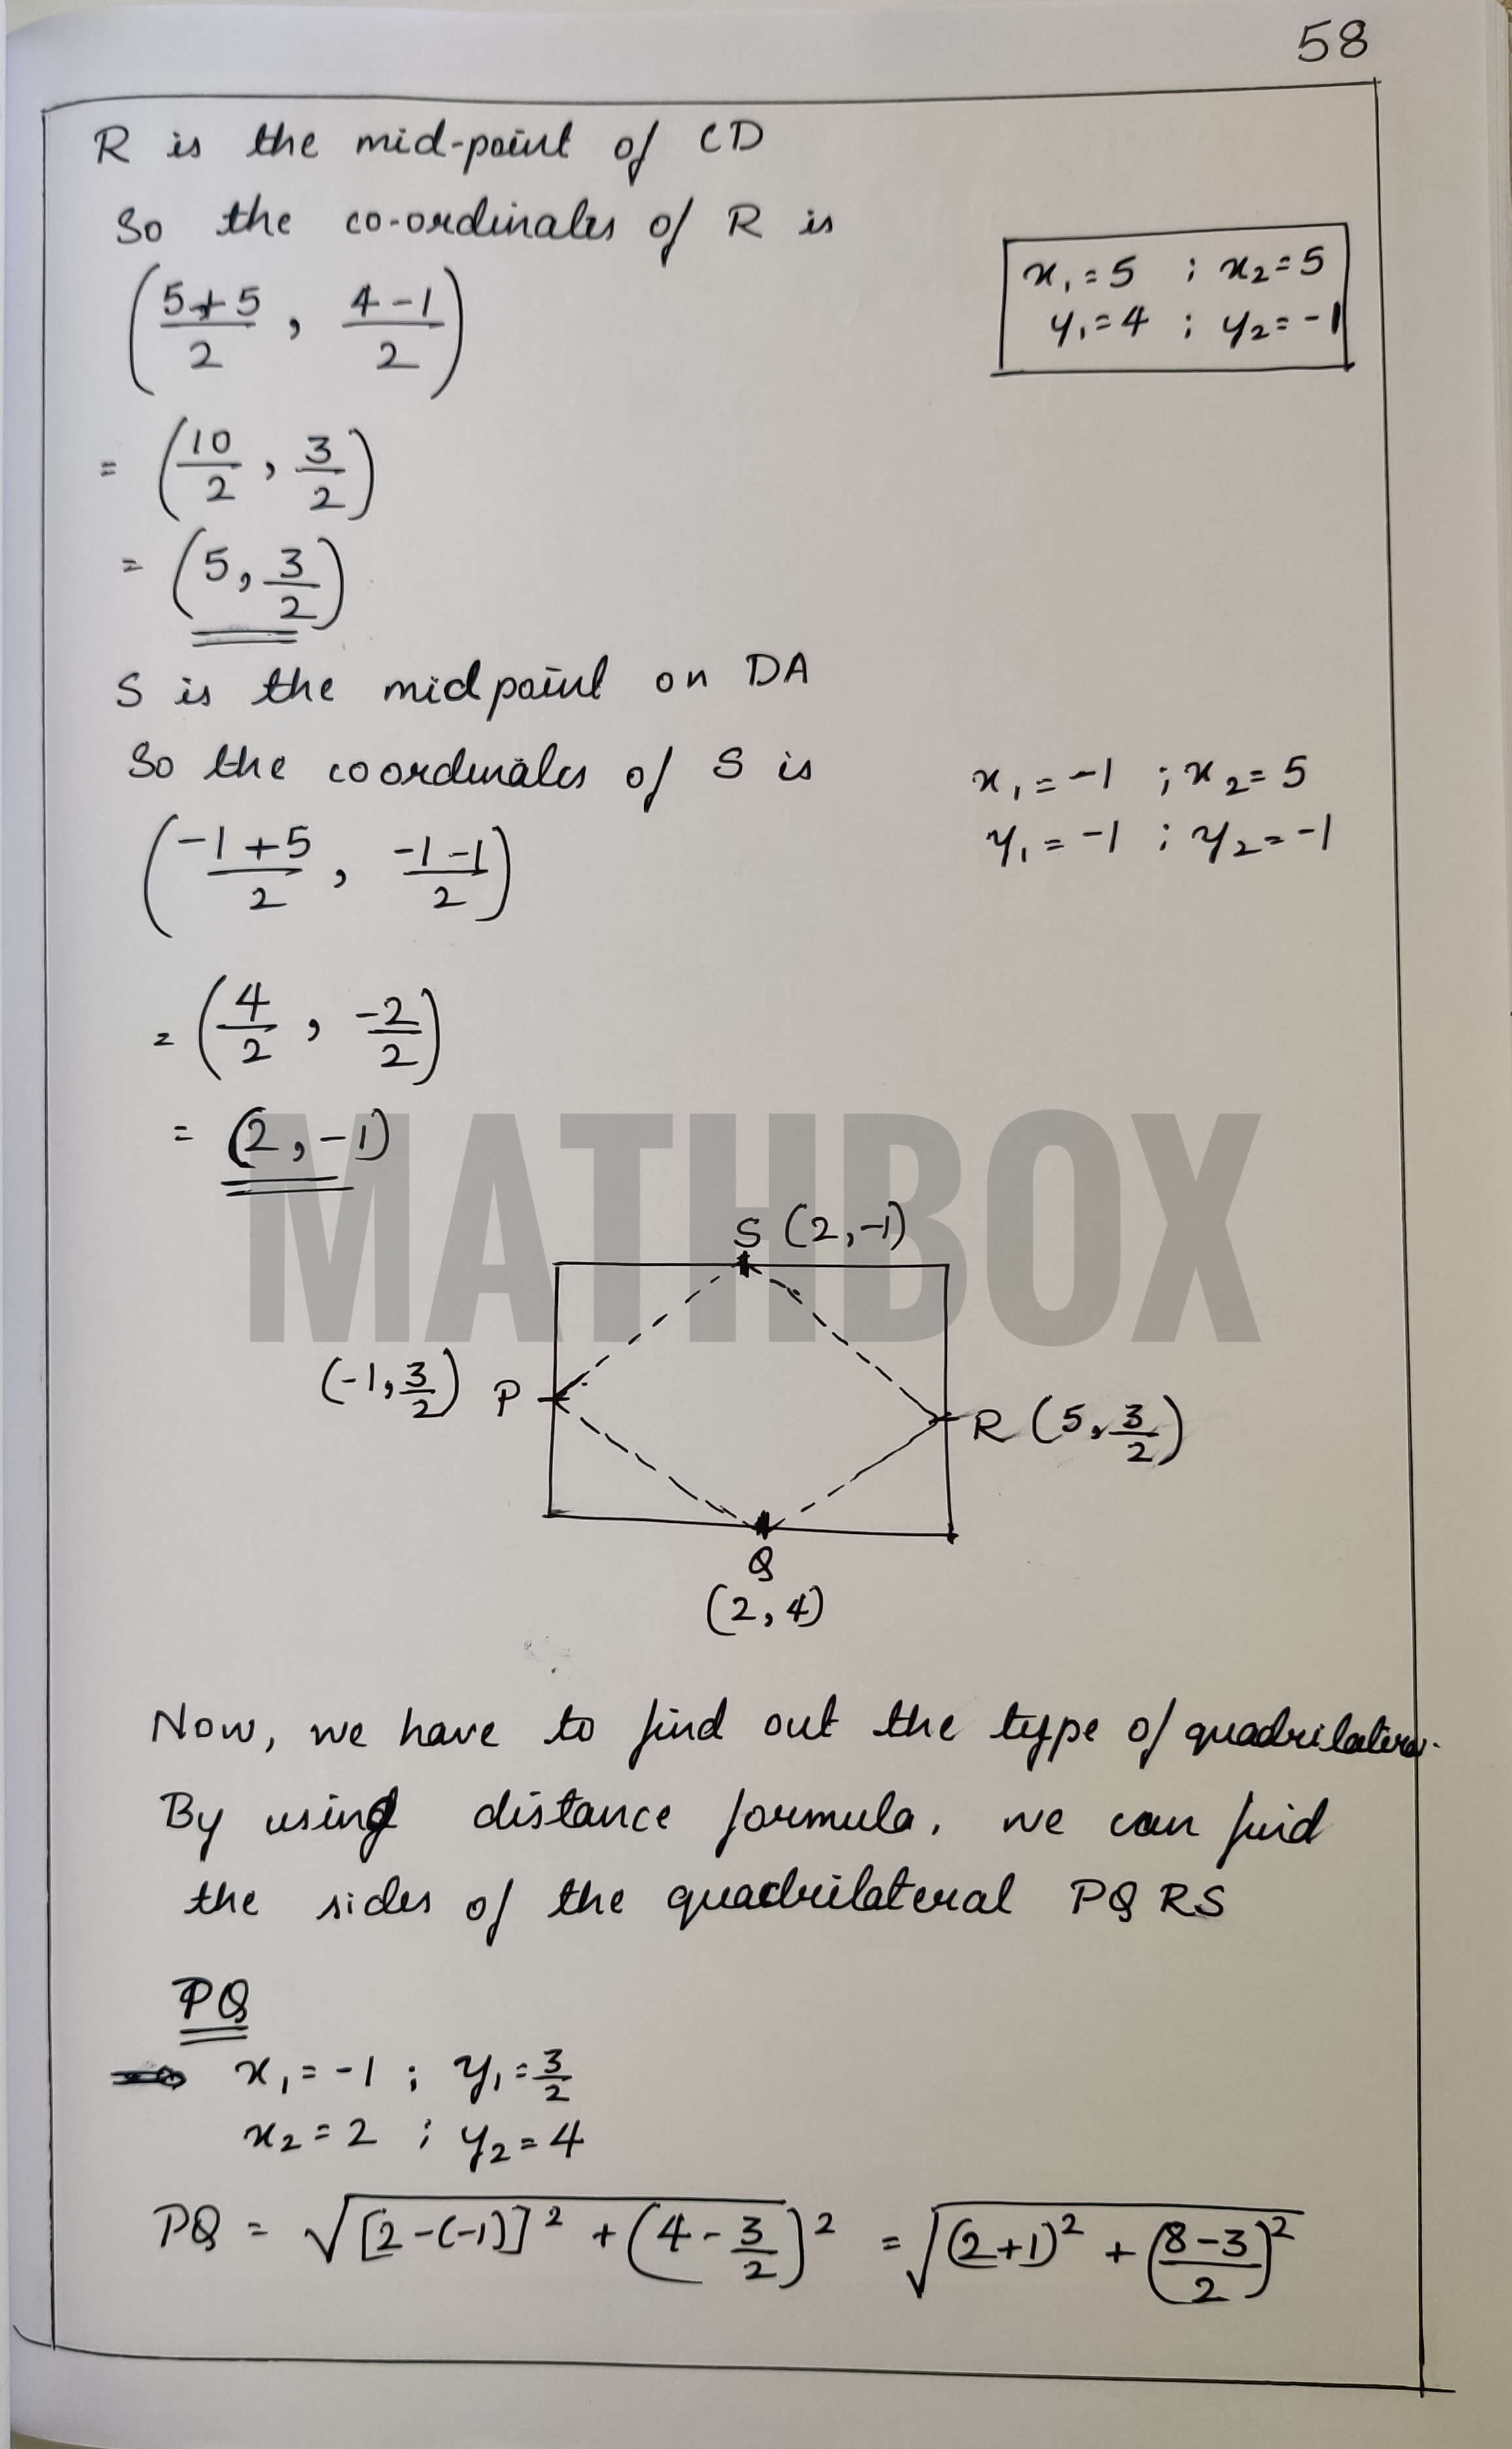 58
R is the mid-point of CD
So the co-ordinates of R is
(5+5/2, 4-1/2)
x₁=5 ; x₂=5
y₁=4 ; y₂=-1
= (10/2, 3/2)
= (5, 3/2)
S is the midpoint on DA
So the coordinates of S is
x₁=-1 ; x₂=5
y₁=-1 ; y₂=-1
(-1+5/2, -1-1/2)
= (4/2, -2/2)
= (2,-1)
MATHBOX
S (2,-1)
(-1, 3/2) P
R (5, 3/2)
Q
(2,4)
Now, we have to find out the type of quadrilateral.
By using distance formula, we can find
the sides of the quadrilateral PQRS
PQ
x₁=-1 ; y₁=3/2
x₂=2 ; y₂=4
PQ = √[2-(-1)]² + (4-3/2)² = √(2+1)² + (8-3/2)²